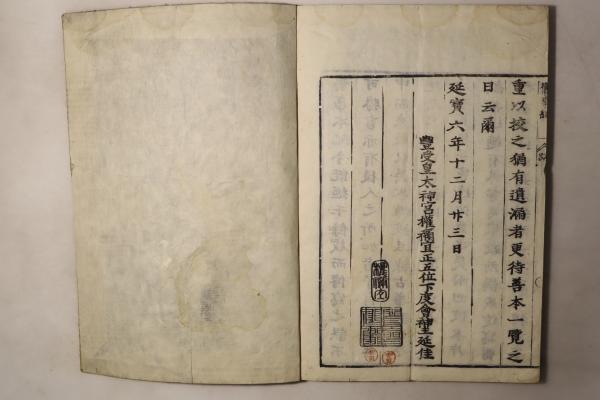 重以挍之猶有遺漏者更待善本一覽之
日云爾
延寶六年十二月廿三日
豐受皇太神宮權禰宜正五位下度會神主延佳